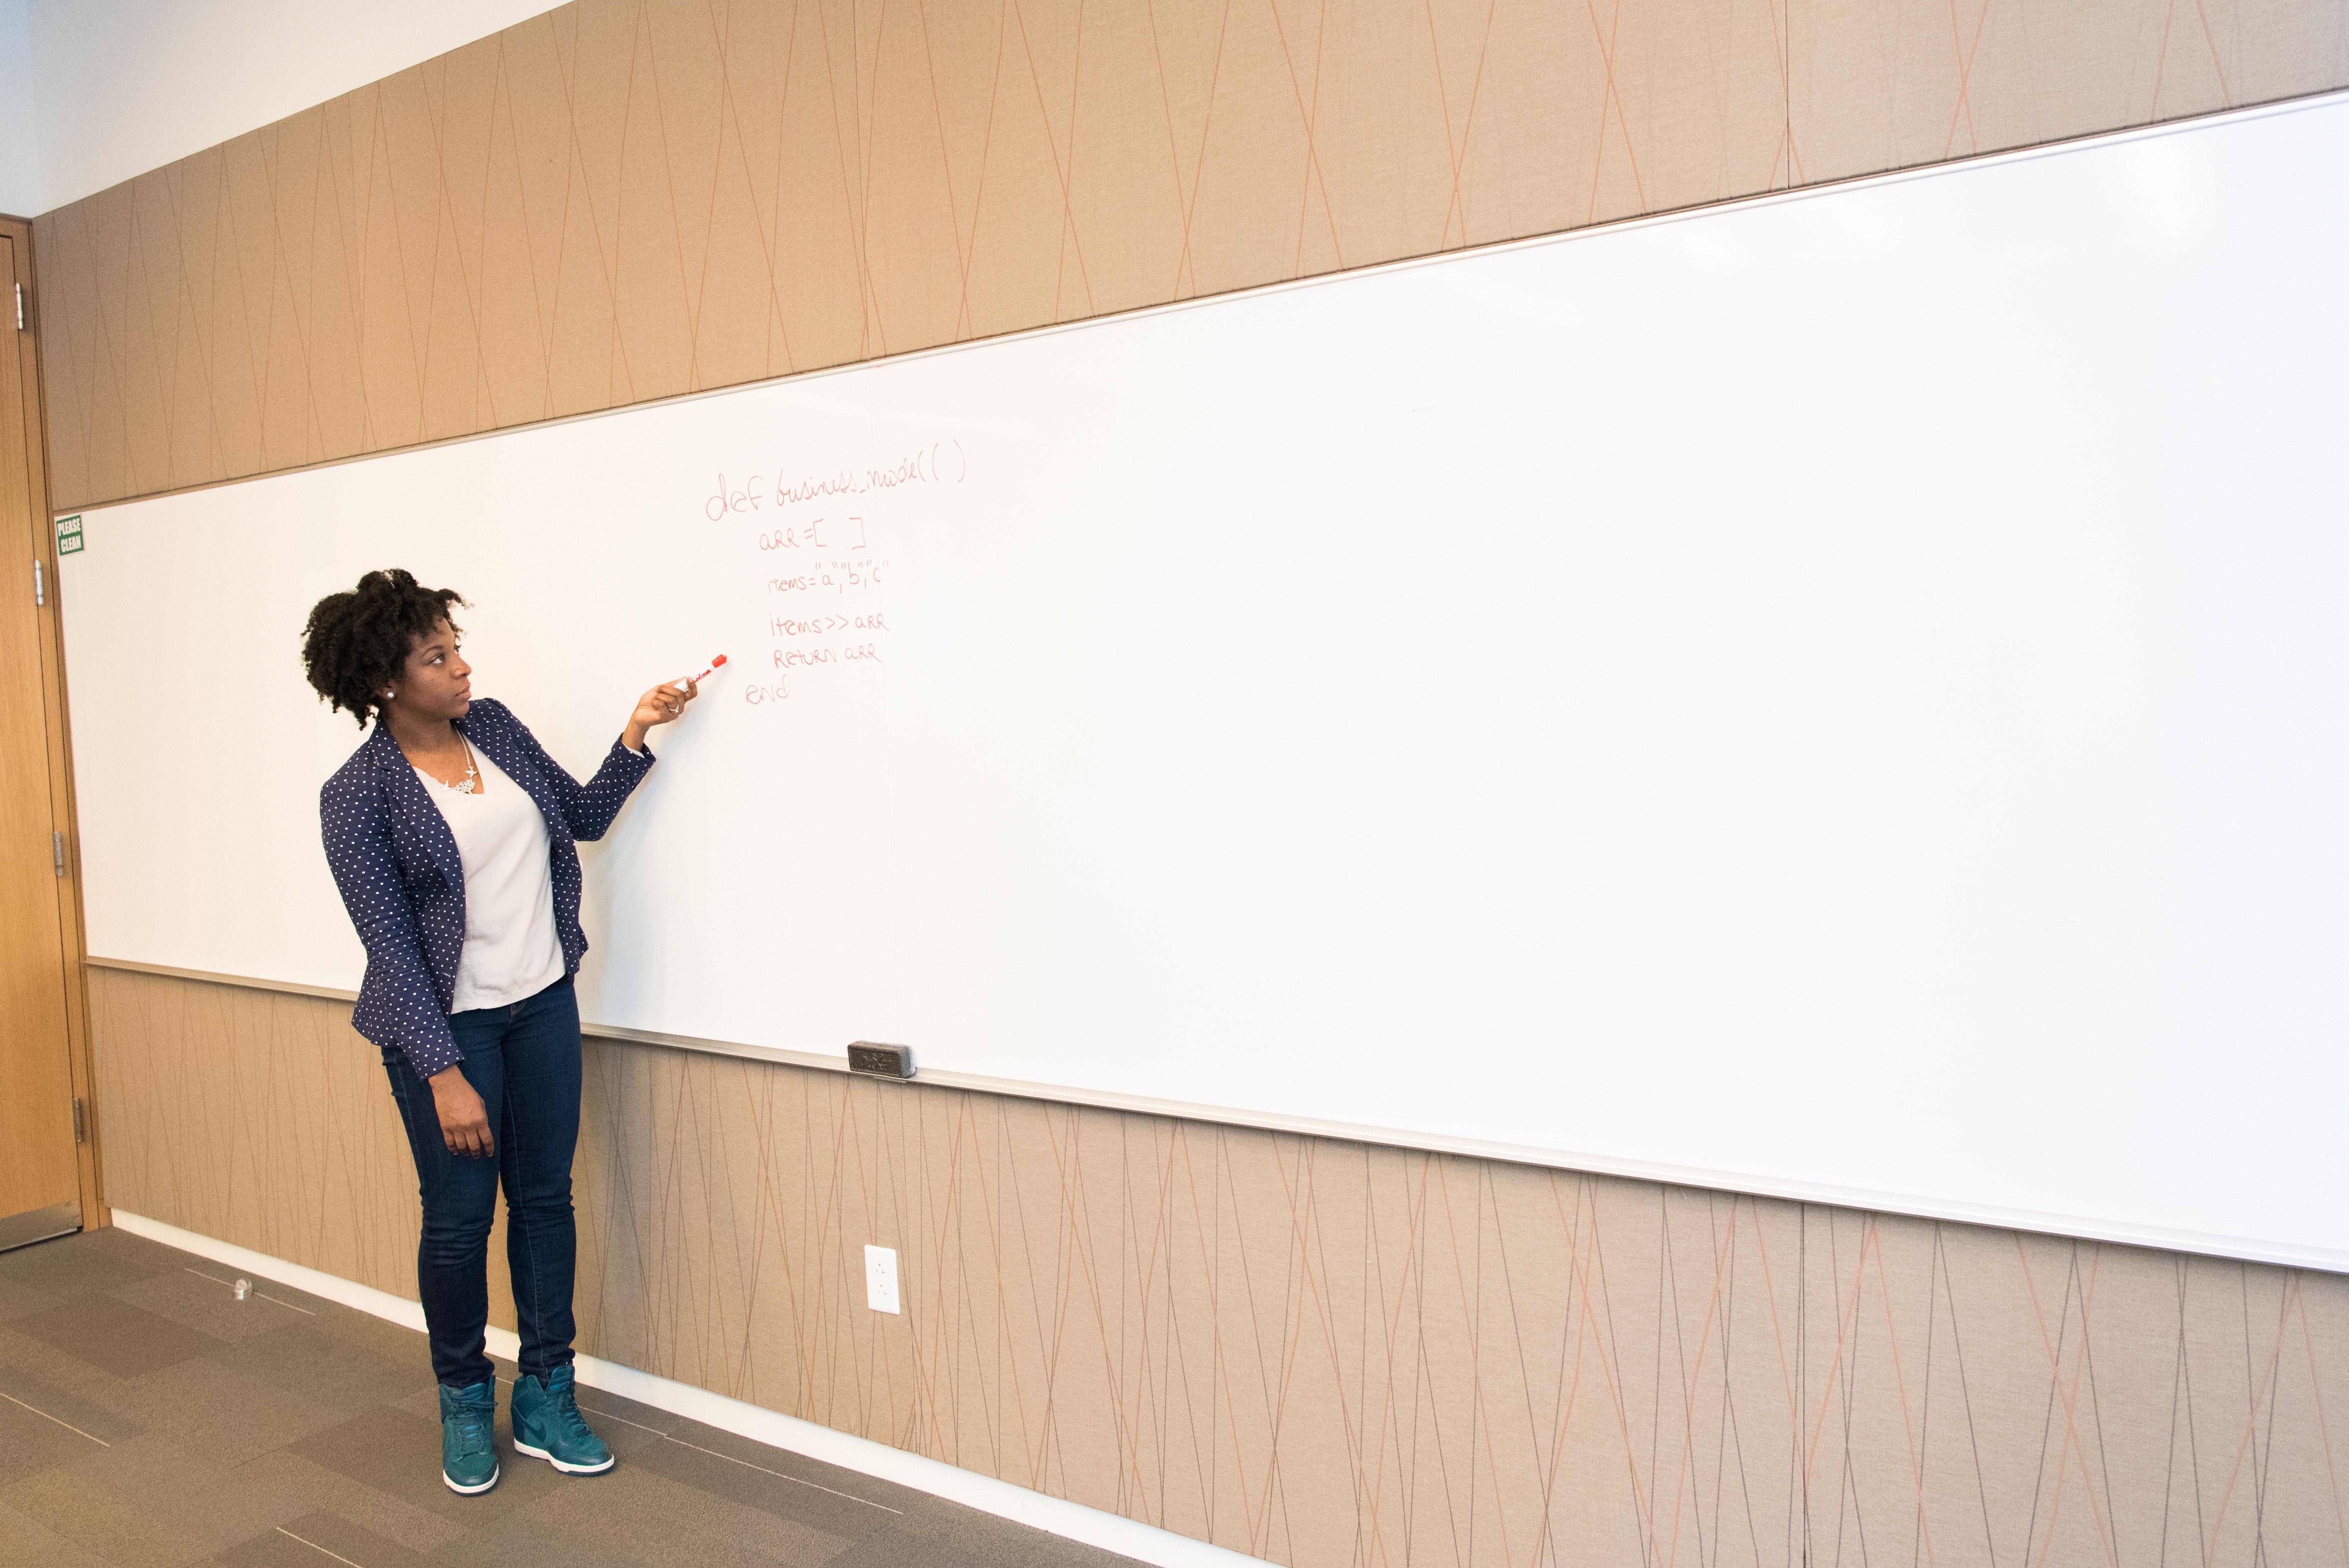 PLEASE
CLEAN
def business_model( )
arr=[ ]
items="a","b","c"
items>>arr
return arr
end